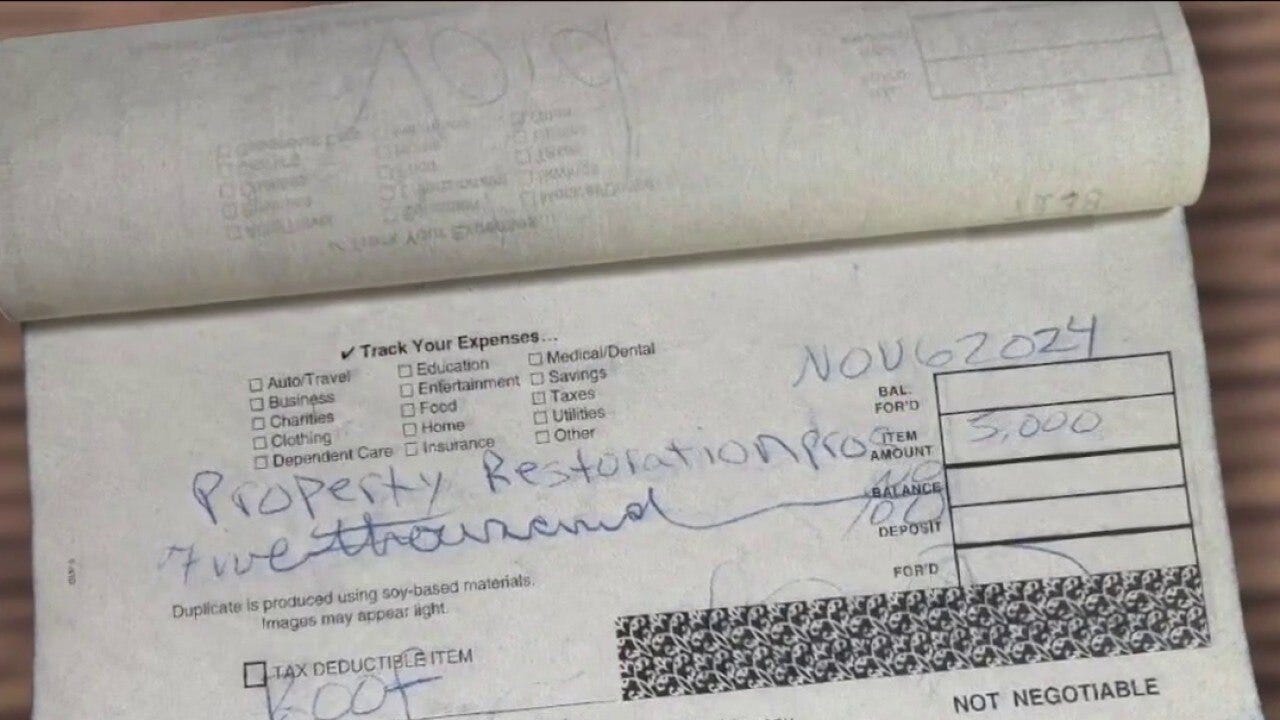 VOID
✓ Track Your Expenses...
Auto/Travel
Business
Charities
Clothing
Dependent Care
Education
Entertainment
Food
Home
Insurance
Medical/Dental
Savings
Taxes
Utilities
Other
NOV 6 2024
BAL. FOR'D
ITEM AMOUNT
5,000
BALANCE
DEPOSIT
FOR'D
Property Restoration pros
Five thousand
NO
100
Duplicate is produced using soy-based materials.
Images may appear light.
TAX DEDUCTIBLE ITEM
Roof
NOT NEGOTIABLE